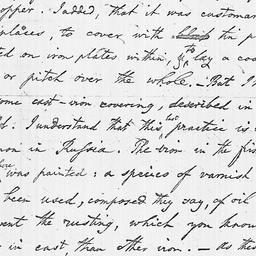 opper. I added, that it was customar
places, to cover with tin p
ed on iron plates within, & to lay a coa
or pitch over the whole. - But I
ome cast-iron covering, described in
d. I understand that this two practice is
on in Russia. The iron in the
was painted: a species of varnish
been used, composed they say, of oil
vent the rusting, which you know
in cast, than other iron. - As thes